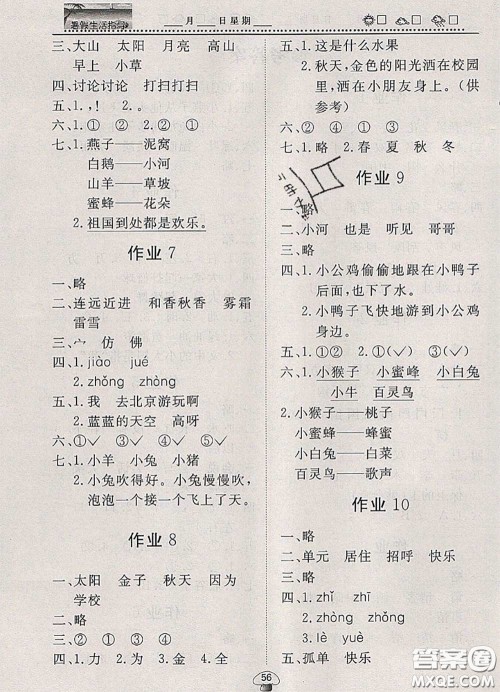 暑假生活指导
月 日星期
三、大山 太阳 月亮 高山
早上 小草
四、讨论讨论 打扫打扫
五、1.，！ 2.。
六、1.① ② 2.② ①
七、1.燕子——泥窝
白鹅——小河
山羊——草坡
蜜蜂——花朵
2.祖国到处都是欢乐。
作业 7
一、略
二、连远近进 和香秋香 雾霜
雷雪
三、宀 仿 佛
四、1.jiào jué
2.zhǒng zhòng
五、1.我 去北京游玩啊
2.蓝蓝的天空 高呀
六、①✓ ② ③ ④ ⑤✓
七、1.小羊 小兔 小猪
2.小兔吹得好。小兔慢慢吹，
泡泡一个接一个飞上了天。
作业 8
一、太阳 金子 秋天 因为
学校
二、略
三、② ④ ① ③
四、1.力 2.为 3.金 4.全
五、1.这是什么水果
2.秋天，金色的阳光洒在校园
里，洒在小朋友身上。（供
参考）
六、② ④ ① ③
七、1.略 2.春 夏 秋 冬
作业 9
一、略
二、小河 也是 听见 哥哥
三、略
四、1.小公鸡偷偷地跟在小鸭子
后面，也下了水。
2.小鸭子飞快地游到小公鸡
身旁。
五、1.①②✓ 2.①✓②
六、1.小猴子 小蜜蜂 小白兔
小牛 百灵鸟
2.小猴子——桃子
小蜜蜂——蜂蜜
小白兔——白菜
百灵鸟——歌声
作业 10
一、略
二、单元 居住 招呼 快乐
三、略
四、1.zhǐ zhī
2.zhòng zhǒng
3.lè yuè
五、孤单 快乐
56
答案圈
MXQE.COM